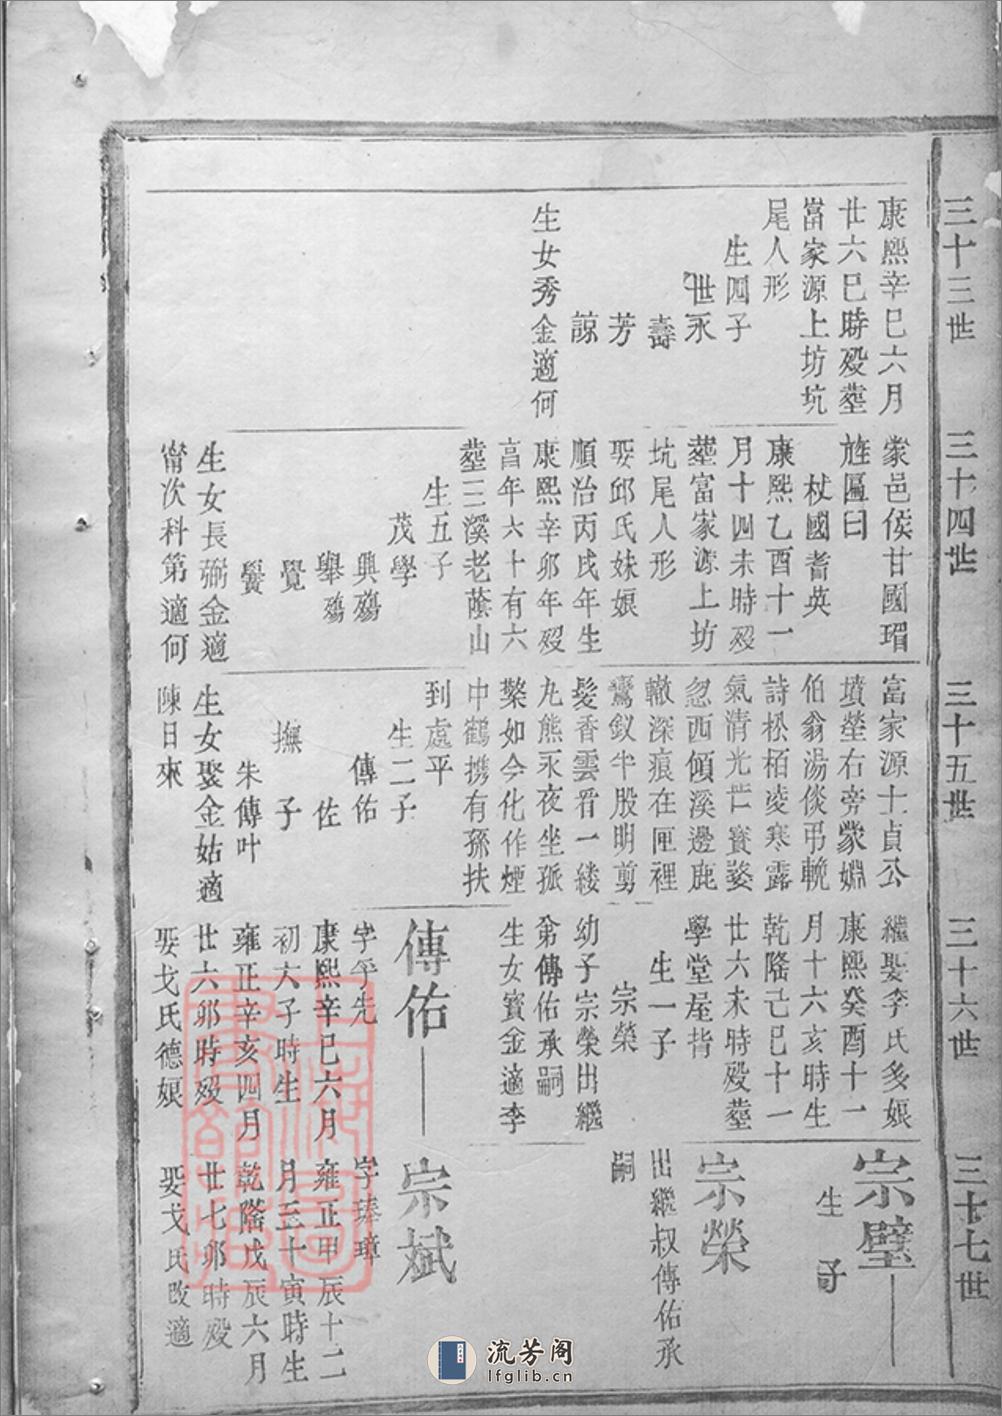 三十三世
康熙辛巳六月
廿六巳時殁塟
富家源上坊坑
尾人形
生四子
世永
壽
芳
諒
生女秀金適何
三十四世
蒙邑侯甘國瑂
旌匾曰
杖國耆英
康熙乙酉十一
月十四未時殁
塟富家源上坊
坑尾人形
娶邱氏妹娘
順治丙戌年生
康熙辛卯年殁
享年六十有六
塟三溪老蔭山
生五子
茂學
興殤
舉殤
覺
鬢
生女長弼金適
甯次科第適何
三十五世
富家源十貞公
墳塋右旁蒙婣
伯翁湯倓弔輓
詩松栢凌寒露
氣清光芒寳婺
忽西傾溪邊鹿
轍深痕在匣裡
鸞釵半股明剪
髮香雲看一縷
丸熊永夜坐孤
檠如今化作煙
中鶴携有孫扶
到處平
生二子
傳佑
佐
撫子
朱傳叶
生女娶金姑適
陳日來
三十六世
繼娶李氏多娘
康熙癸酉十一
月十六亥時生
乾隆己巳十一
廿六未時殁塟
學堂屋背
生一子
宗榮
幼子宗榮出繼
弟傳佑承嗣
生女寳金適李
傳佑
字平先
康熙辛巳六月
初六子時生
雍正辛亥四月
廿六卯時殁
娶戈氏德娘
三十七世
宗璧
生子
宗榮
出繼叔傳佑承
嗣
宗斌
字瑧璋
雍正甲辰十二
月三十寅時生
乾隆戊辰六月
廿七卯時殁
娶戈氏改適
上海圖書館藏
流芳阁
lfglib.cn